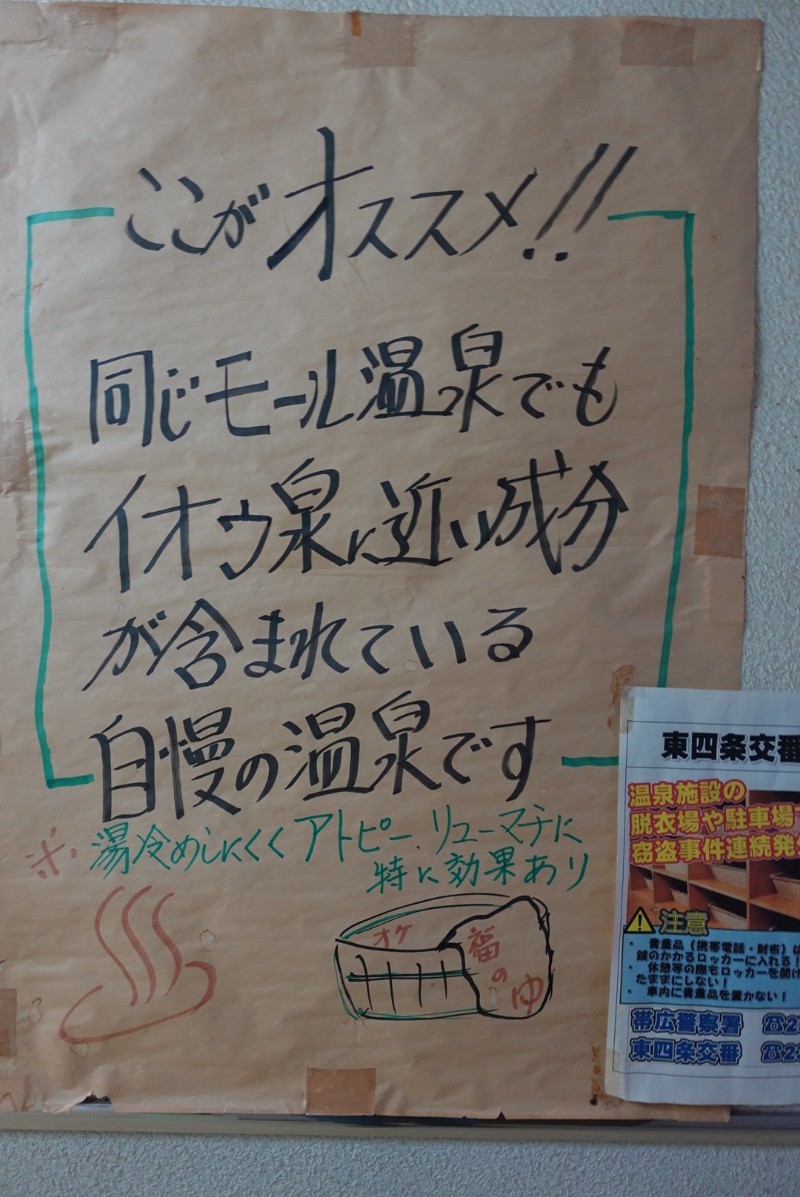 ここがオススメ!!
同じモール温泉でも
イオウ泉に近い成分
が含まれている
自慢の温泉です
※湯冷めしにくくアトピー、リューマチに
特に効果あり
オケ
福のゆ
東四条交番
温泉施設の
脱衣場や駐車場
窃盗事件連続発
注意
・貴重品(携帯電話・財布)は
鍵のかかるロッカーに入れる!
・休憩等の際もロッカーを開け
たままにしない!
・車内に貴重品を置かない!
帯広警察署 ☎2
東四条交番 ☎2